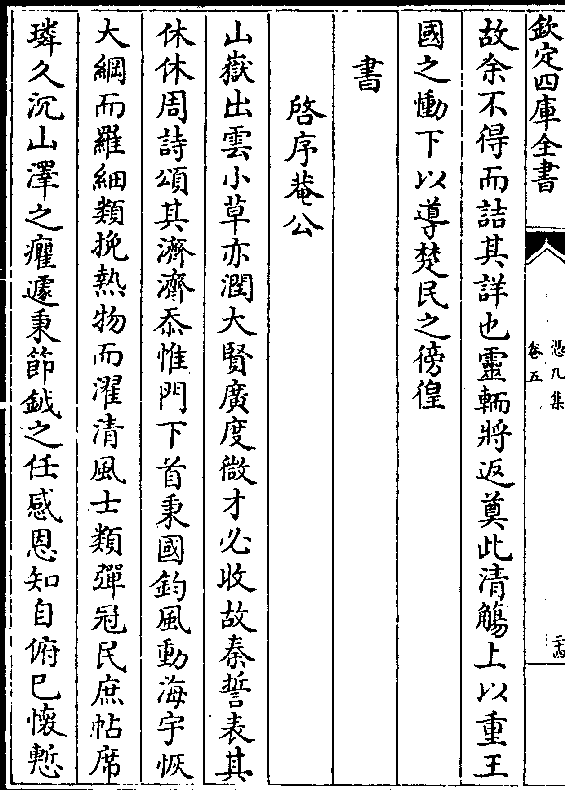 欽定四庫全書
憑几集
卷五
二十四
故余不得而詰其詳也靈輀將返奠此清觴上以重王
國之慟下以導楚民之徬徨
書
啓序菴公
山嶽出雲小草亦潤大賢廣度微才必收故秦誓表其
休休周詩頌其濟濟忝惟門下首秉國鈞風動海宇恢
大綱而羅細類挽熱物而濯清風士類彈冠民庶帖席
璘久沉山澤之癯遽秉節鉞之任感恩知自俯已懷慙